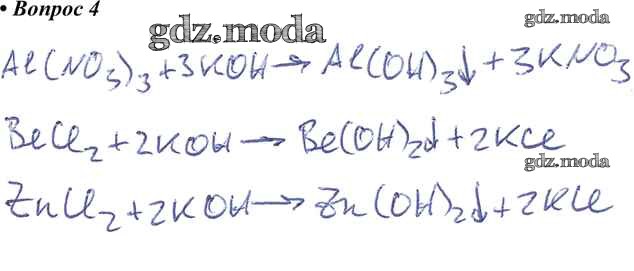 • Вопрос 4
gdz.moda
gdz.moda
Al(NO₃)₃ + 3KOH → Al(OH)₃↓ + 3KNO₃
BeCl₂ + 2KOH → Be(OH)₂↓ + 2KCl
gdz.moda
ZnCl₂ + 2KOH → Zn(OH)₂↓ + 2KCl